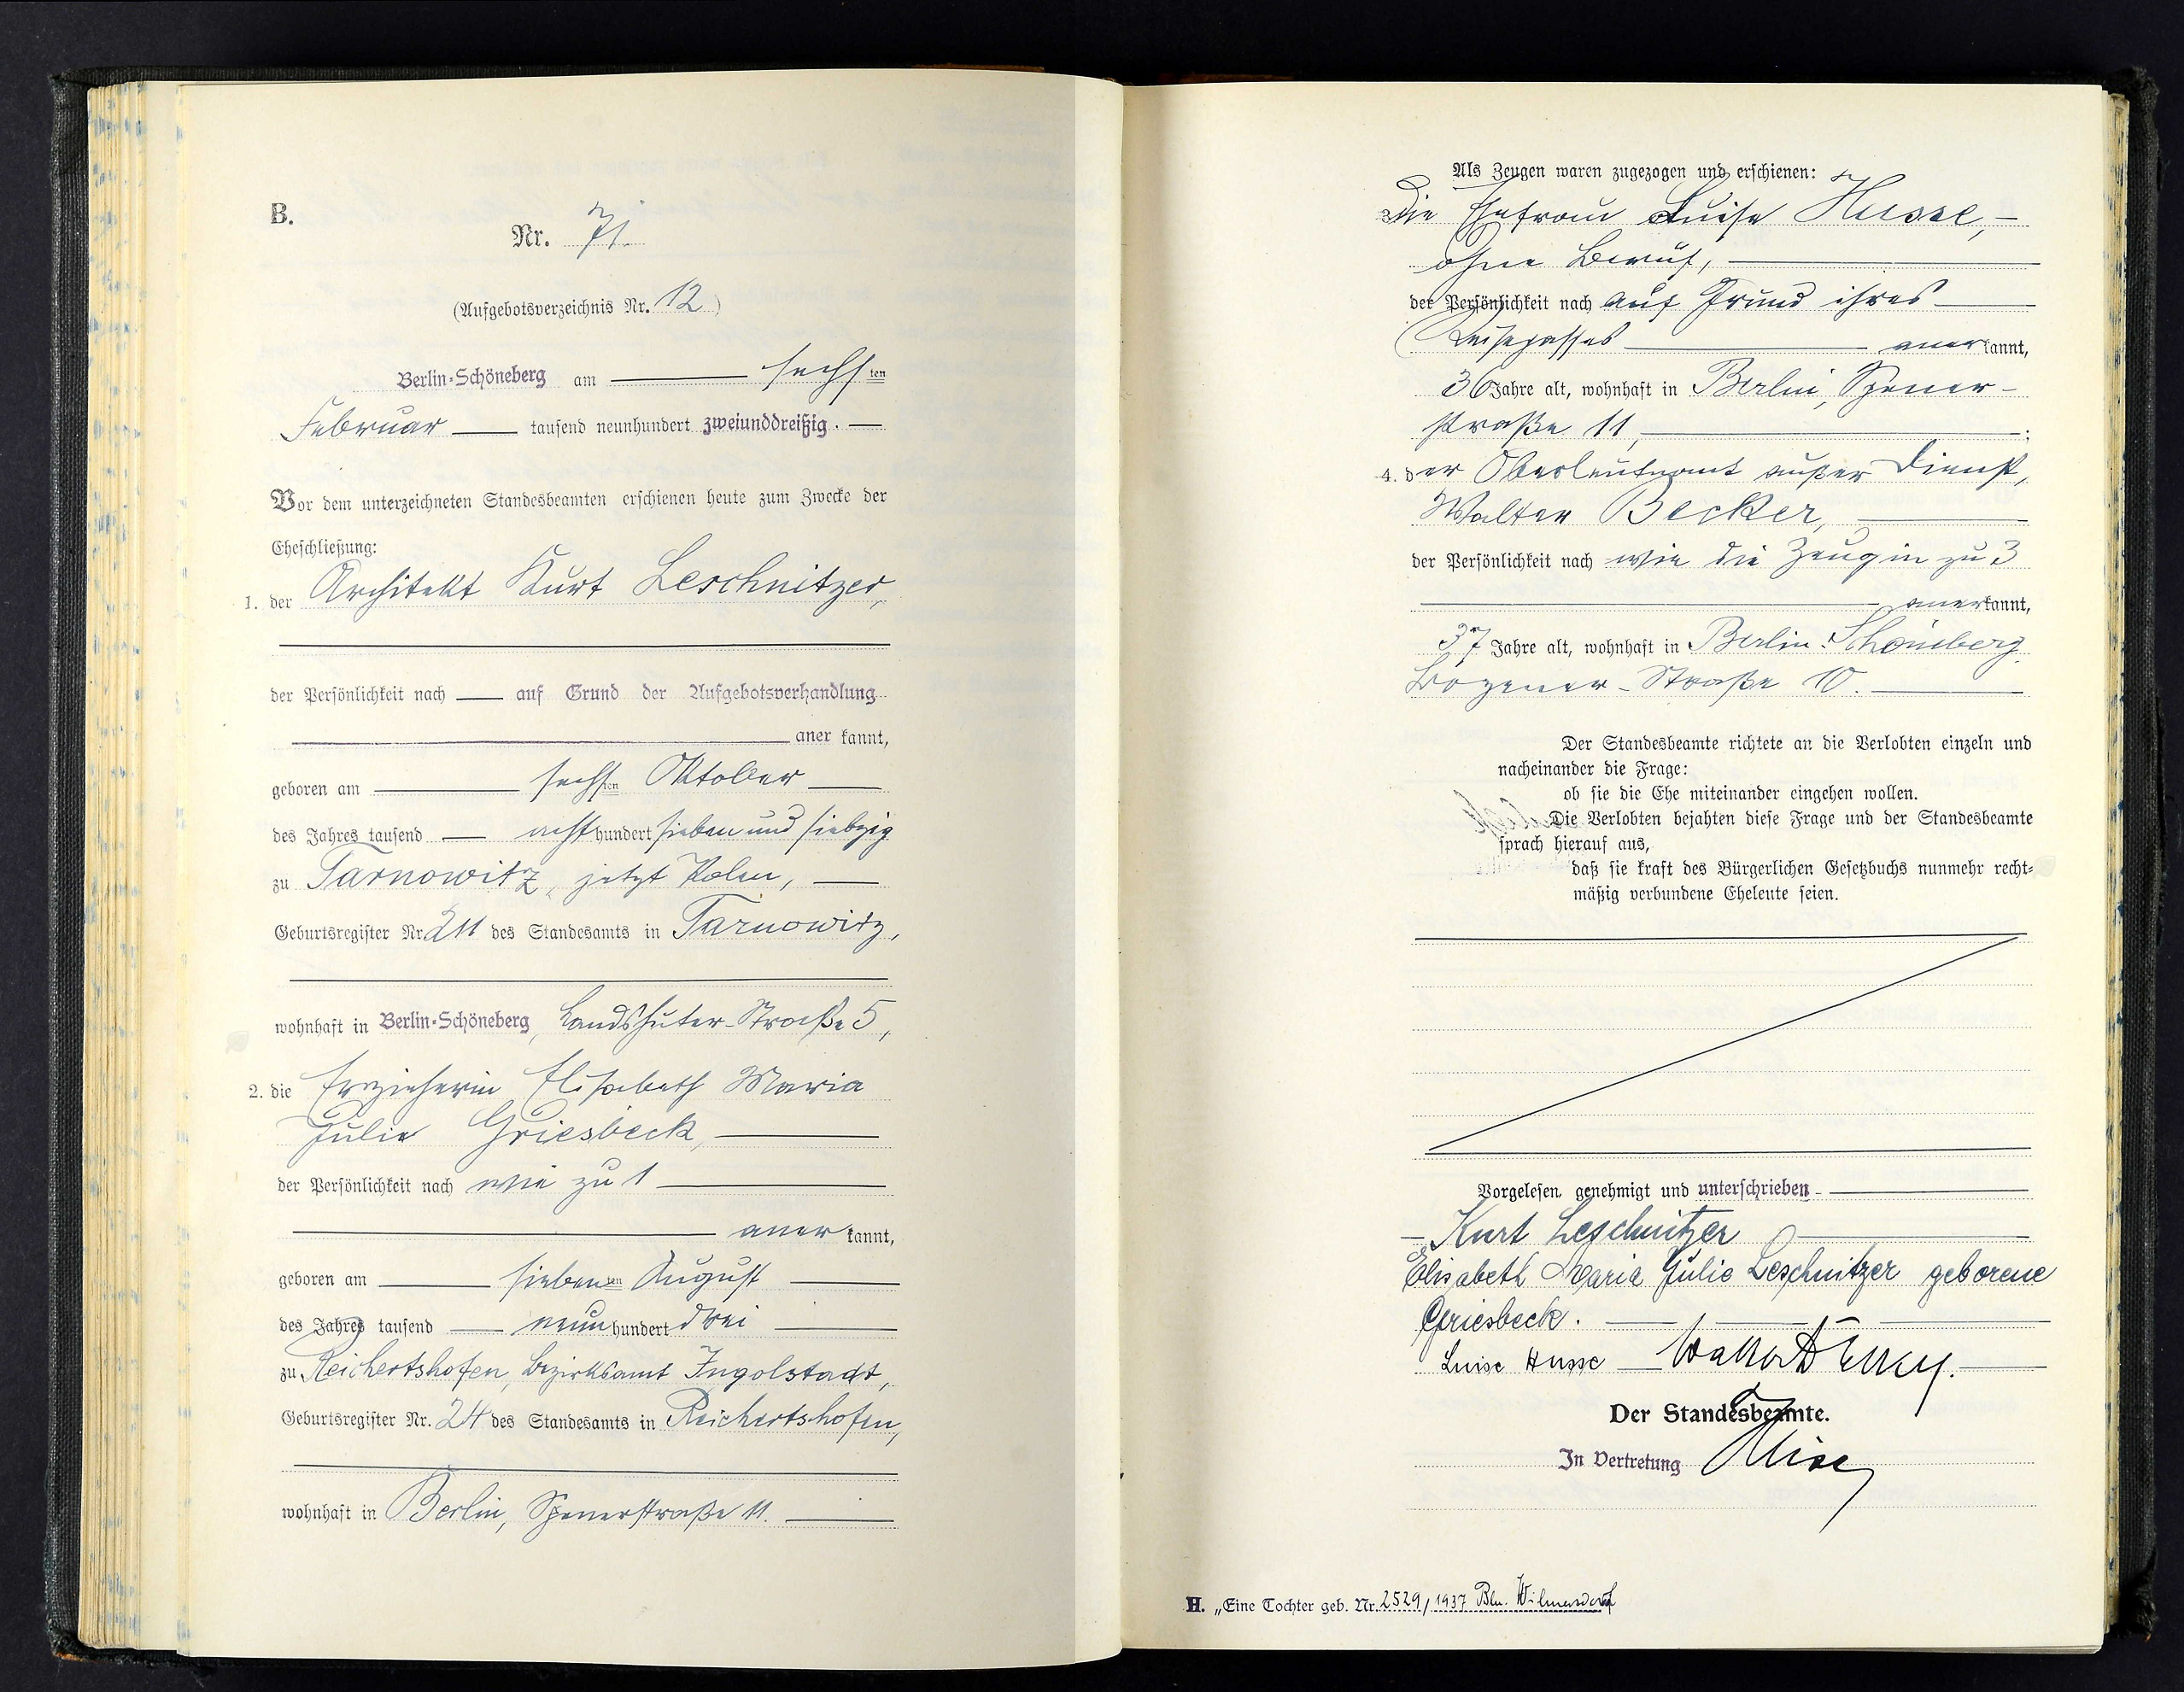 B.
Nr. 71.
(Aufgebotsverzeichnis Nr. 12)
Berlin-Schöneberg am sechsten
Februar tausend neunhundert zweiunddreißig.
Vor dem unterzeichneten Standesbeamten erschienen heute zum Zwecke der
Eheschließung:
1. der Architekt Kurt Leschnitzer,
der Persönlichkeit nach auf Grund der Aufgebotsverhandlung
aner kannt,
geboren am sechsten Oktober
des Jahres tausend achthundert sieben und siebzig
zu Tarnowitz, jetzt Polen,
Geburtsregister Nr. 211 des Standesamts in Tarnowitz,
wohnhaft in Berlin-Schöneberg, Landshuter-Straße 5,
2. die Erzieherin Elisabeth Maria
Julie Griesbeck,
der Persönlichkeit nach wie zu 1
aner kannt,
geboren am siebenten August
des Jahres tausend neunhundert drei
zu Reichertshofen, Bezirksamt Ingolstadt,
Geburtsregister Nr. 24 des Standesamts in Reichertshofen,
wohnhaft in Berlin, Spenerstraße 11.
Als Zeugen waren zugezogen und erschienen:
3. die Ehefrau Luise Husse,
ohne Beruf,
der Persönlichkeit nach auf Grund ihres
Reisepasses anerkannt,
36 Jahre alt, wohnhaft in Berlin, Spener-
straße 11,;
4. der Oberleutnant außer Dienst,
Walter Becker,
der Persönlichkeit nach wie die Zeugin zu 3
anerkannt,
37 Jahre alt, wohnhaft in Berlin-Schöneberg
Bozener-Straße 10.
Der Standesbeamte richtete an die Verlobten einzeln und
nacheinander die Frage:
ob sie die Ehe miteinander eingehen wollen.
Die Verlobten bejahten diese Frage und der Standesbeamte
sprach hierauf aus,
daß sie kraft des Bürgerlichen Gesetzbuchs nunmehr recht-
mäßig verbundene Eheleute seien.
Vorgelesen, genehmigt und unterschrieben
Kurt Leschnitzer
Elisabeth Maria Julie Leschnitzer geborene
Griesbeck.
Luise Husse
Der Standesbeamte.
In Vertretung
H. „Eine Tochter geb. Nr. 2529/1937 Bln. Wilmersdorf